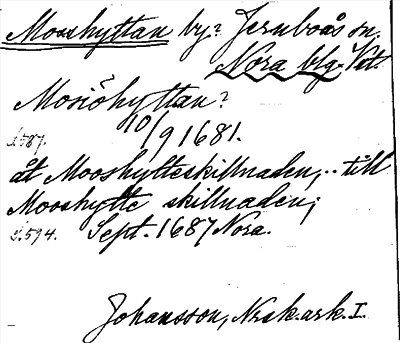 Mosshyttan by? Järnboås sn,
Nora blg. Vst.
Mosiöhyttan?
s. 587. 10/9 1681.
åt Mooshytteskillnaden,.. till
Mooshytte skillnaden;
s. 594. Sept. 1687 Nora.
Johansson, Nrak.ark. I.